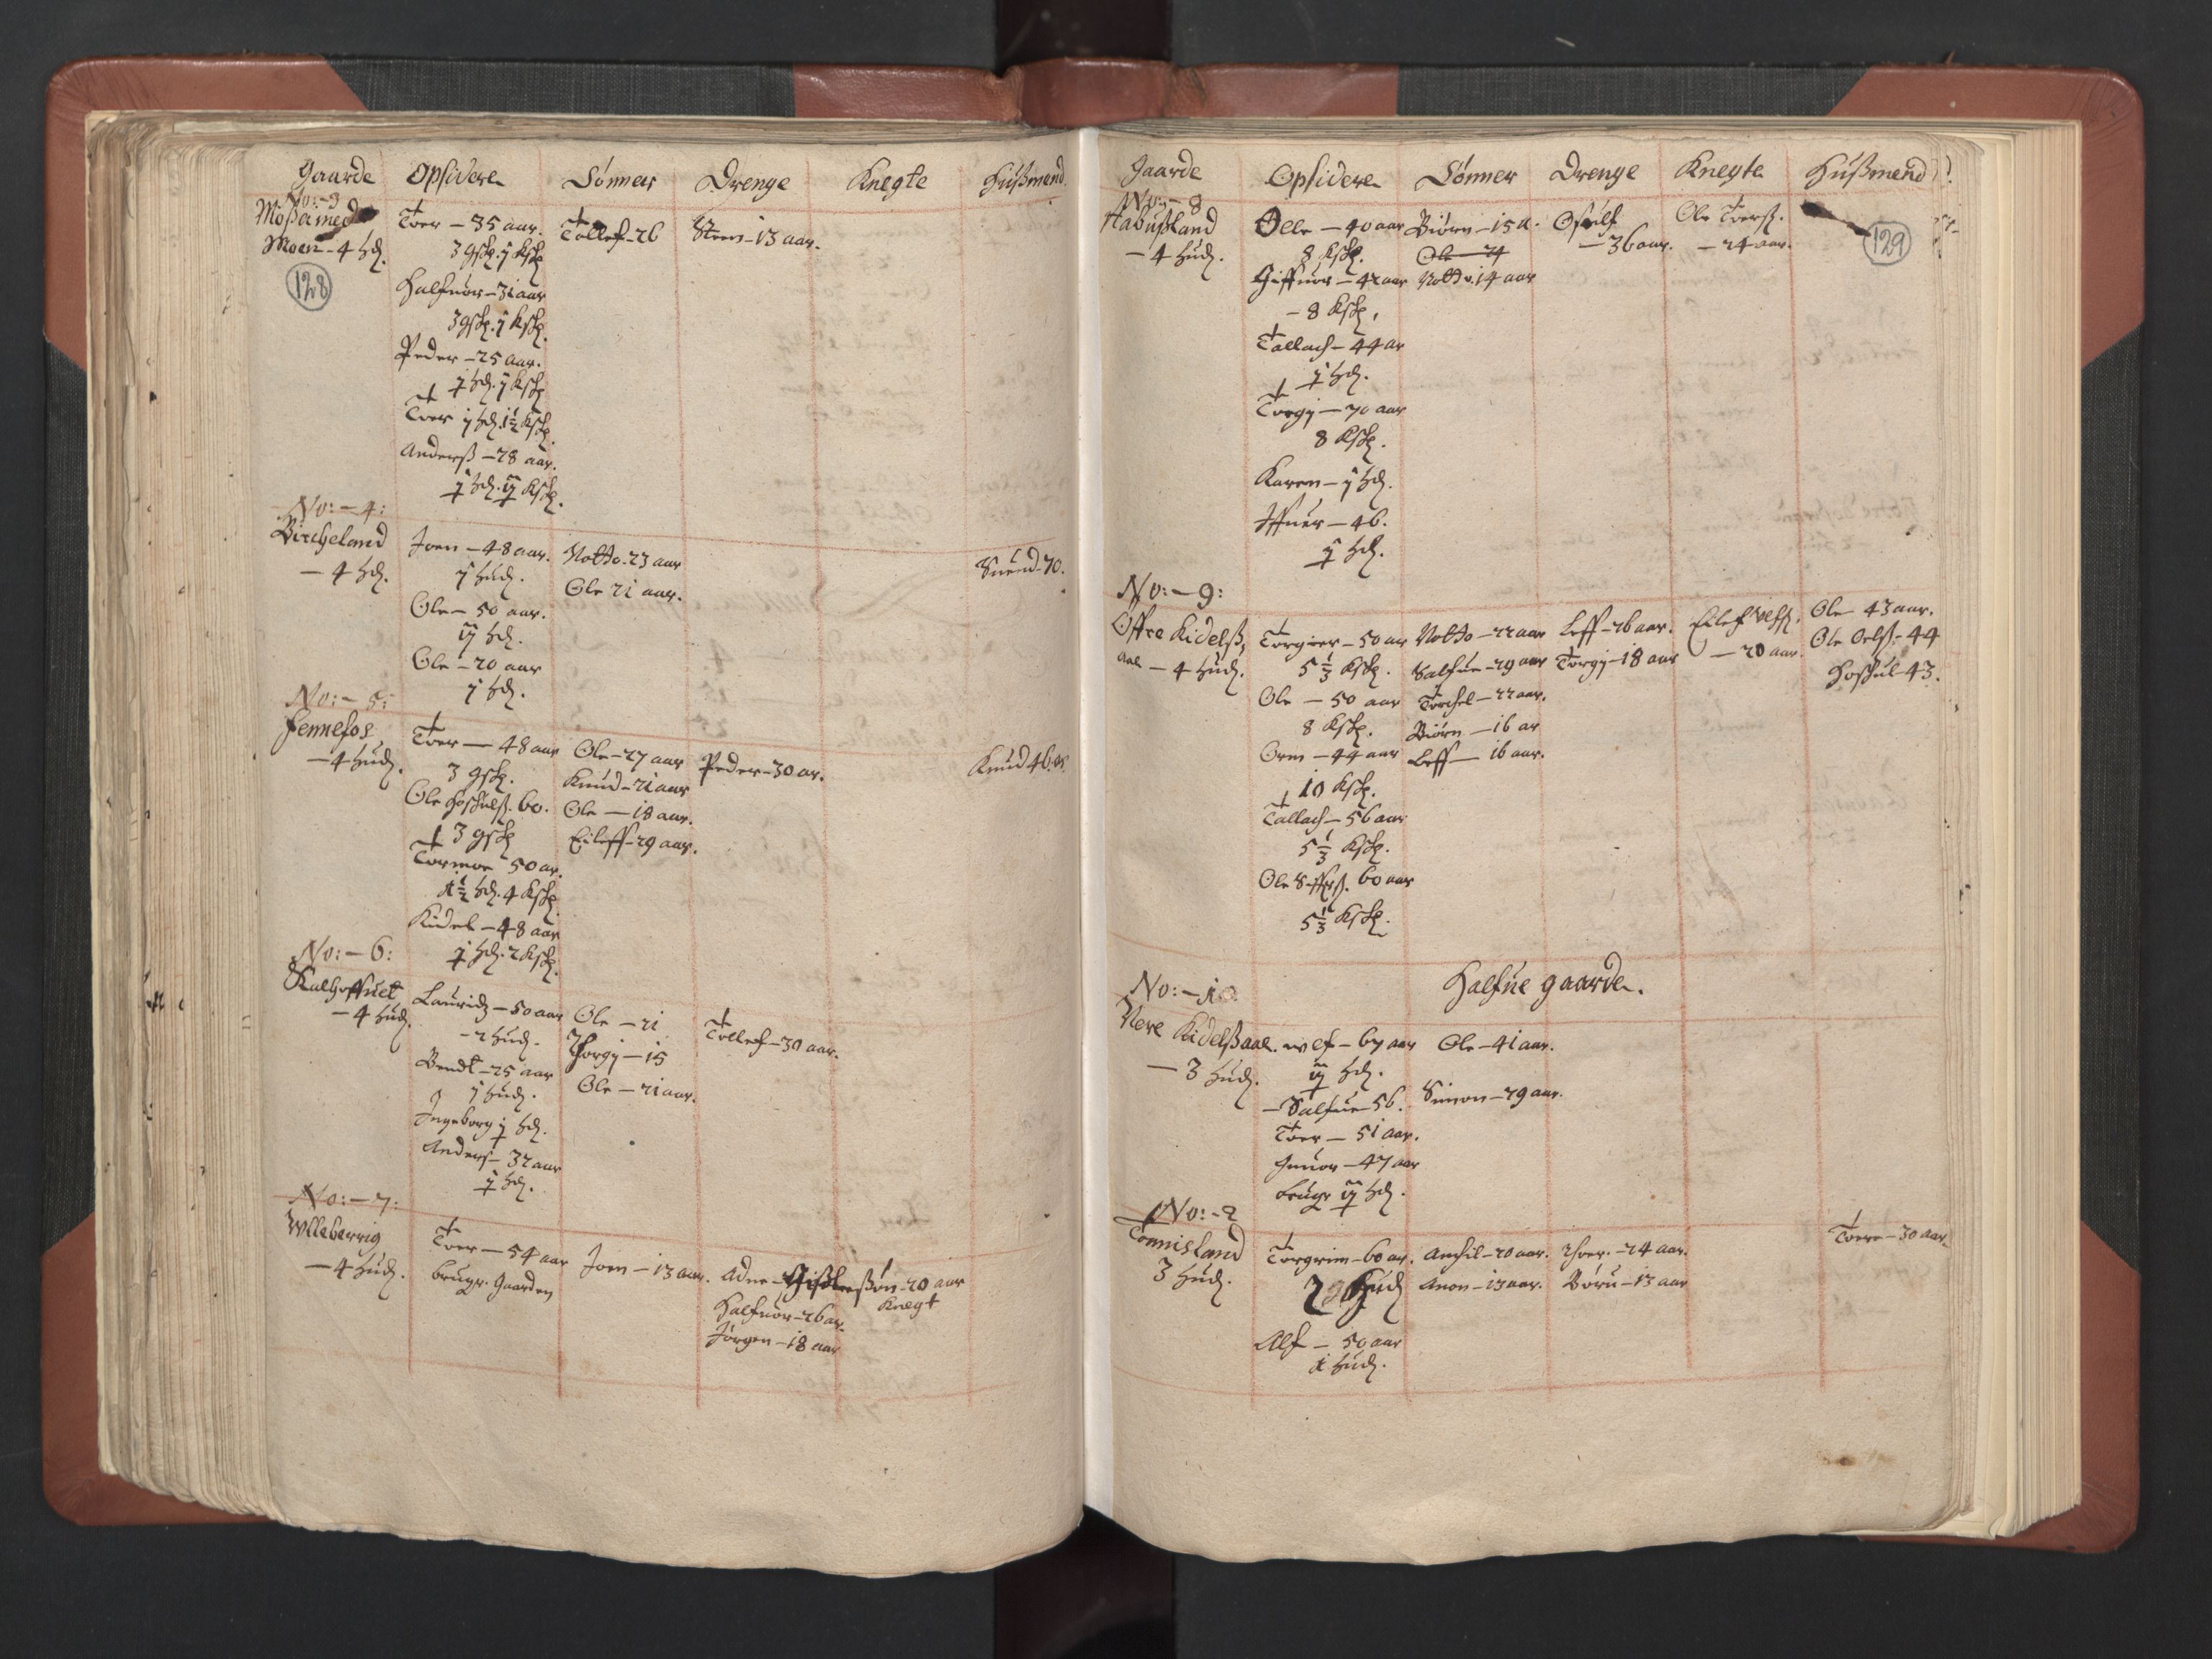 Gaarde Opsidere Sønner Drenge Knegte Hußmend
No: - 3
Moßermed
Moen - 4 Hd.
128
Toer - 35 aar.
3 gskz. j kskz
Halfuor - 31 aar
3 gskz. j kskz.
Peder - 25 aar.
j Hd. j kskz
Toer j Hd. 1½ kskz.
Anderß - 28 aar.
j Hd. ij kskz.
Tollef - 26
Steen - 13 aar.
No: - 4:
Bircheland
- 4 Hd.
Joen - 48 aar.
j Hud.
Ole - 50 aar.
ij Hd.
Ole - 20 aar
j Hd.
Notto - 23 aar
Ole 21 aar.
Suend - 70.
No: - 5:
Fennefos
- 4 Hud.
Toer - 48 aar
3 gskz.
Ole Hoskulß. 60.
3 gskz
Tormoe 50 ar.
1½ Hd. 4 kskz
Kidel - 48 aar
j Hd. 2 kskz.
Ole - 27 aar
Knud - 21 aar
Ole - 18 aar.
Eileff - 29 aar.
Peder - 30 ar.
Knud 46 ar.
No: - 6:
Kalhoffuet
- 4 Hud.
Lauridz - 50 aar
- 2 Hud.
Bendt - 25 aar
j Hud.
Ingeborg j Hd.
Anders - 32 aar
j Hd.
Ole - 21
Thorgj - 15
Ole - 21 aar.
Tollef - 30 aar.
No: - 7:
Wlleberrig
- 4 Hud.
Toer - 54 aar
bruger Gaarden
Joen - 13 aar.
Adne - Gißleßøn - 20 aar
Knegt
Halfuor - 26 ar.
Jørgen - 18 aar
Gaarde Opsidere Sønner Drenge Knegte Hußmend
129
No: - 8
Habußland
- 4 Hud.
Olle - 40 aar
8 kskz.
Giffuor - 42 aar
- 8 kskz.
Tallach - 44 ar
j Hd.
Torgj - 70 aar
8 kskz.
Karen - j Hd.
Iffuer - 46.
j Hd.
Biørn - 15 a.
Ole - 24
Notto. 14 aar
Osulf
- 36 aar.
Ole Toerß.
- 24 aar.
No: - 9:
Offre Kidelß,
aal - 4 Hud.
Torgier - 50 aar
5⅓ kskz.
Ole - 50 aar
8 kskz.
Orm - 44 aar
10 kskz.
Tallach - 56 aar
5⅓ kskz.
Ole 60 aar
5⅓ kskz.
Notto - 22 aar
Salfue - 29 aar
Torchel - 22 aar.
Biørn - 16 ar
Leff - 16 aar.
Leff - 26 aar.
Torgj - 18 aar
Eilef
- 20 aar.
Ole 43 aar.
Ole Oelß - 44
Hoskul - 43.
Halfue gaarde.
No: - 10
Nere Kidelßaal.
- 3 Hud.
Wlf - 67 aar
ij Hd.
- Salfue 56.
Toer - 51 aar.
Gunuor - 47 aar
bruger ij Hd.
Ole - 41 aar.
Simon - 29 aar.
No: - 2
Tonnisland
3 Hud.
Torgrim - 60 ar.
2 Hud
Alf - 50 aar
1 Hud.
Anchil - 20 aar.
Anon - 13 aar.
Thoer. - 24 aar.
Boru - 13 aar
Toere - 30 aar.